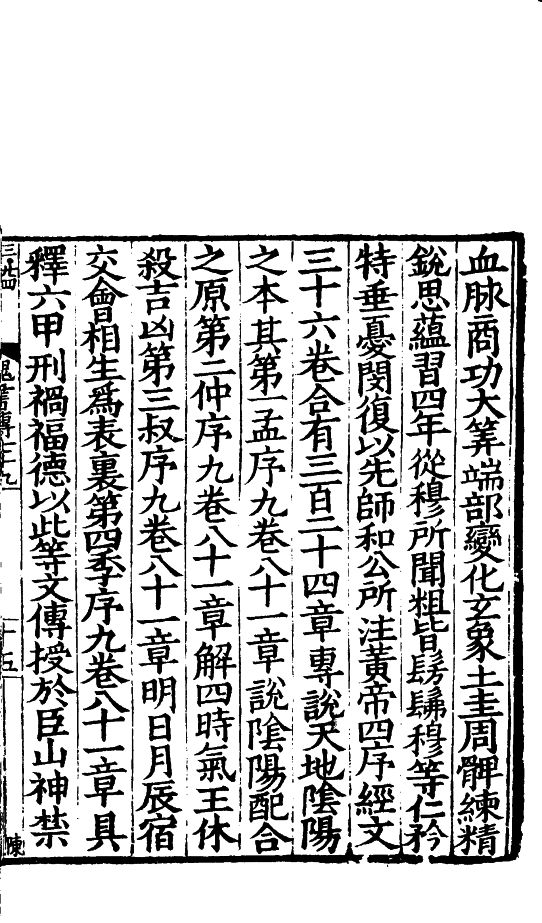 血脉商功大筭端部變化玄象土圭周髀練精
銳思蘊習四年從穆所聞粗皆髣髴穆等仁矜
特垂憂閔復以先師和公所注黃帝四序經文
三十六卷合有三百二十四章專說天地陰陽
之本其第一孟序九卷八十一章說陰陽配合
之原第二仲序九卷八十一章解四時氣王休
殺吉凶第三叔序九卷八十一章明日月辰宿
交會相生爲表裏第四季序九卷八十一章具
釋六甲刑禍福德以此等文傳授於臣山神禁